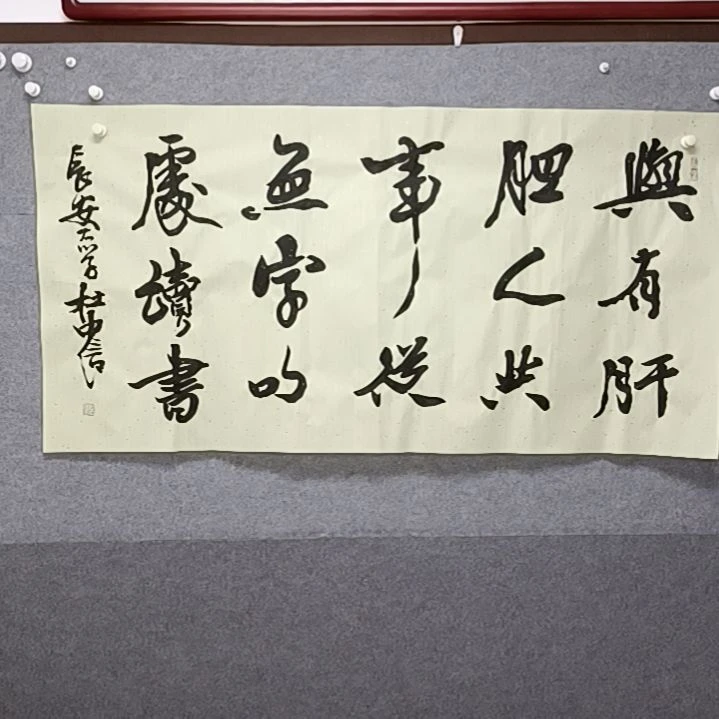 與有肝
胆人共
事從
無字的
處讀書
長安大學杜中信